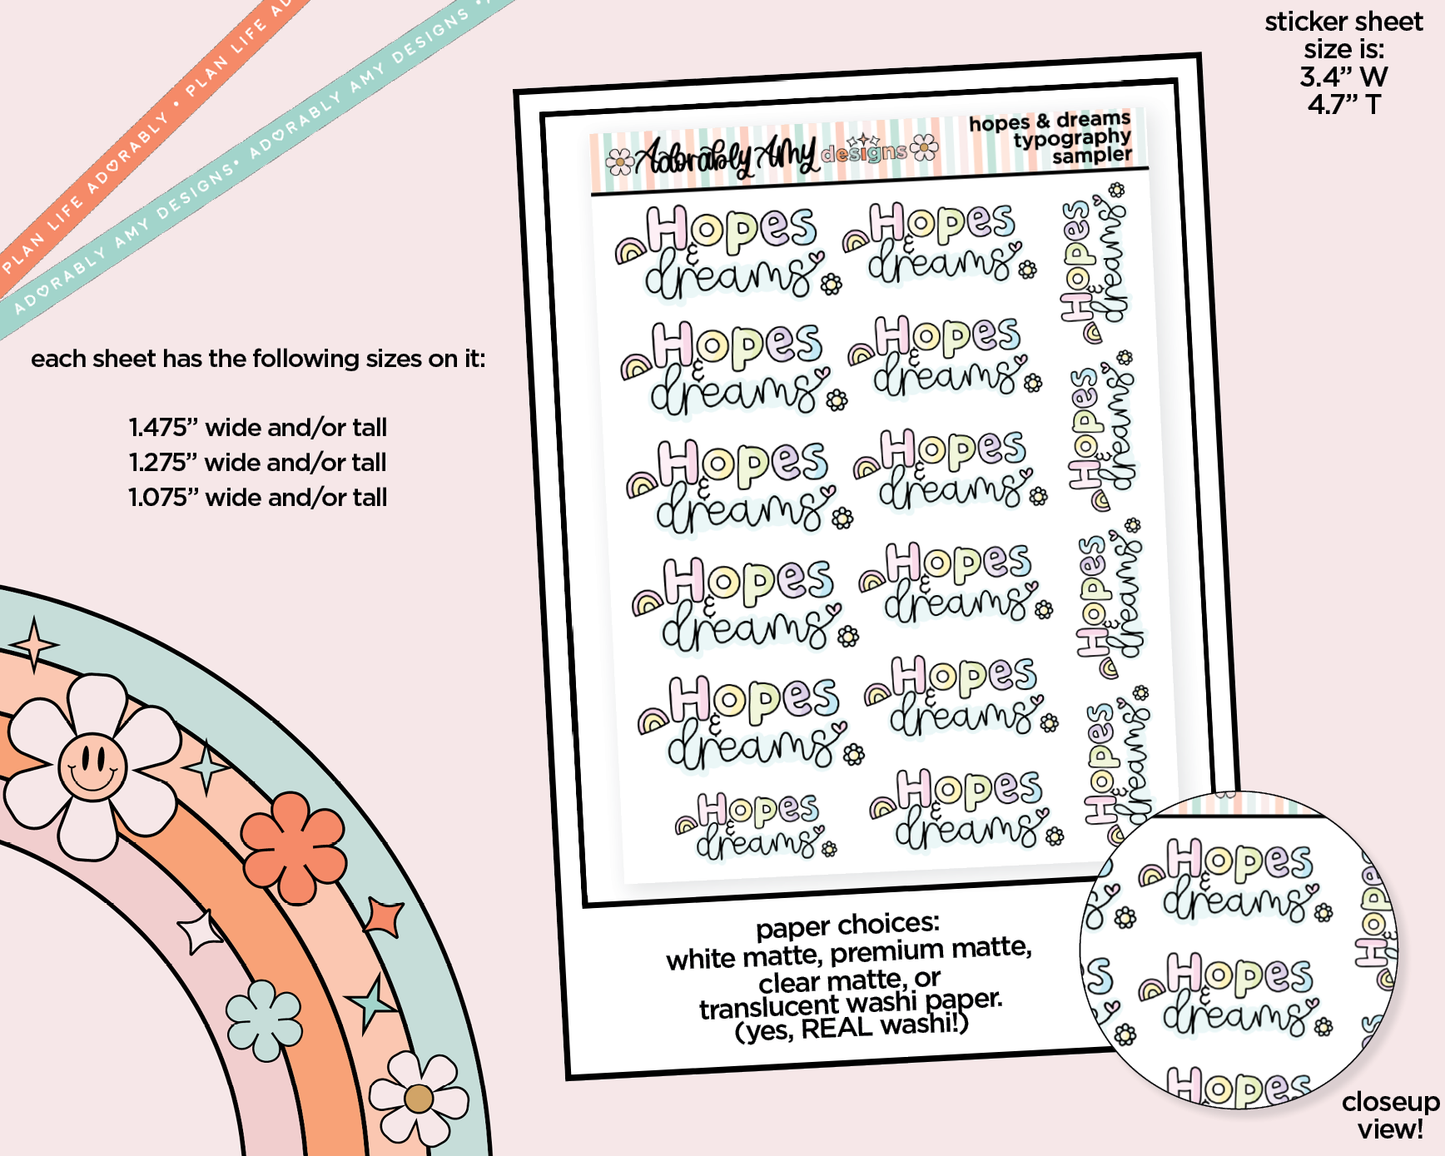 PLAN LIFE ADORABLY • PLAN LIFE AD
ADORABLY AMY DESIGNS* ADORABLY AMY DESIGNS *
sticker sheet
size is:
3.4” W
4.7” T
each sheet has the following sizes on it:
1.475” wide and/or tall
1.275” wide and/or tall
1.075” wide and/or tall
Adorably Amy designs
hopes & dreams
typography
sampler
Hopes
&
dreams
Hopes
&
dreams
Hopes
&
dreams
Hopes
&
dreams
Hopes
&
dreams
Hopes
&
dreams
Hopes
&
dreams
Hopes
&
dreams
Hopes
&
dreams
Hopes
&
dreams
Hopes
&
dreams
Hopes
&
dreams
Hopes
&
dreams
Hopes
&
dreams
Hopes
&
dreams
Hopes
&
dreams
paper choices:
white matte, premium matte,
clear matte, or
translucent washi paper.
(yes, REAL washi!)
Hopes
&
dreams
Hopes
&
dreams
Hopes
Hopes
closeup
view!